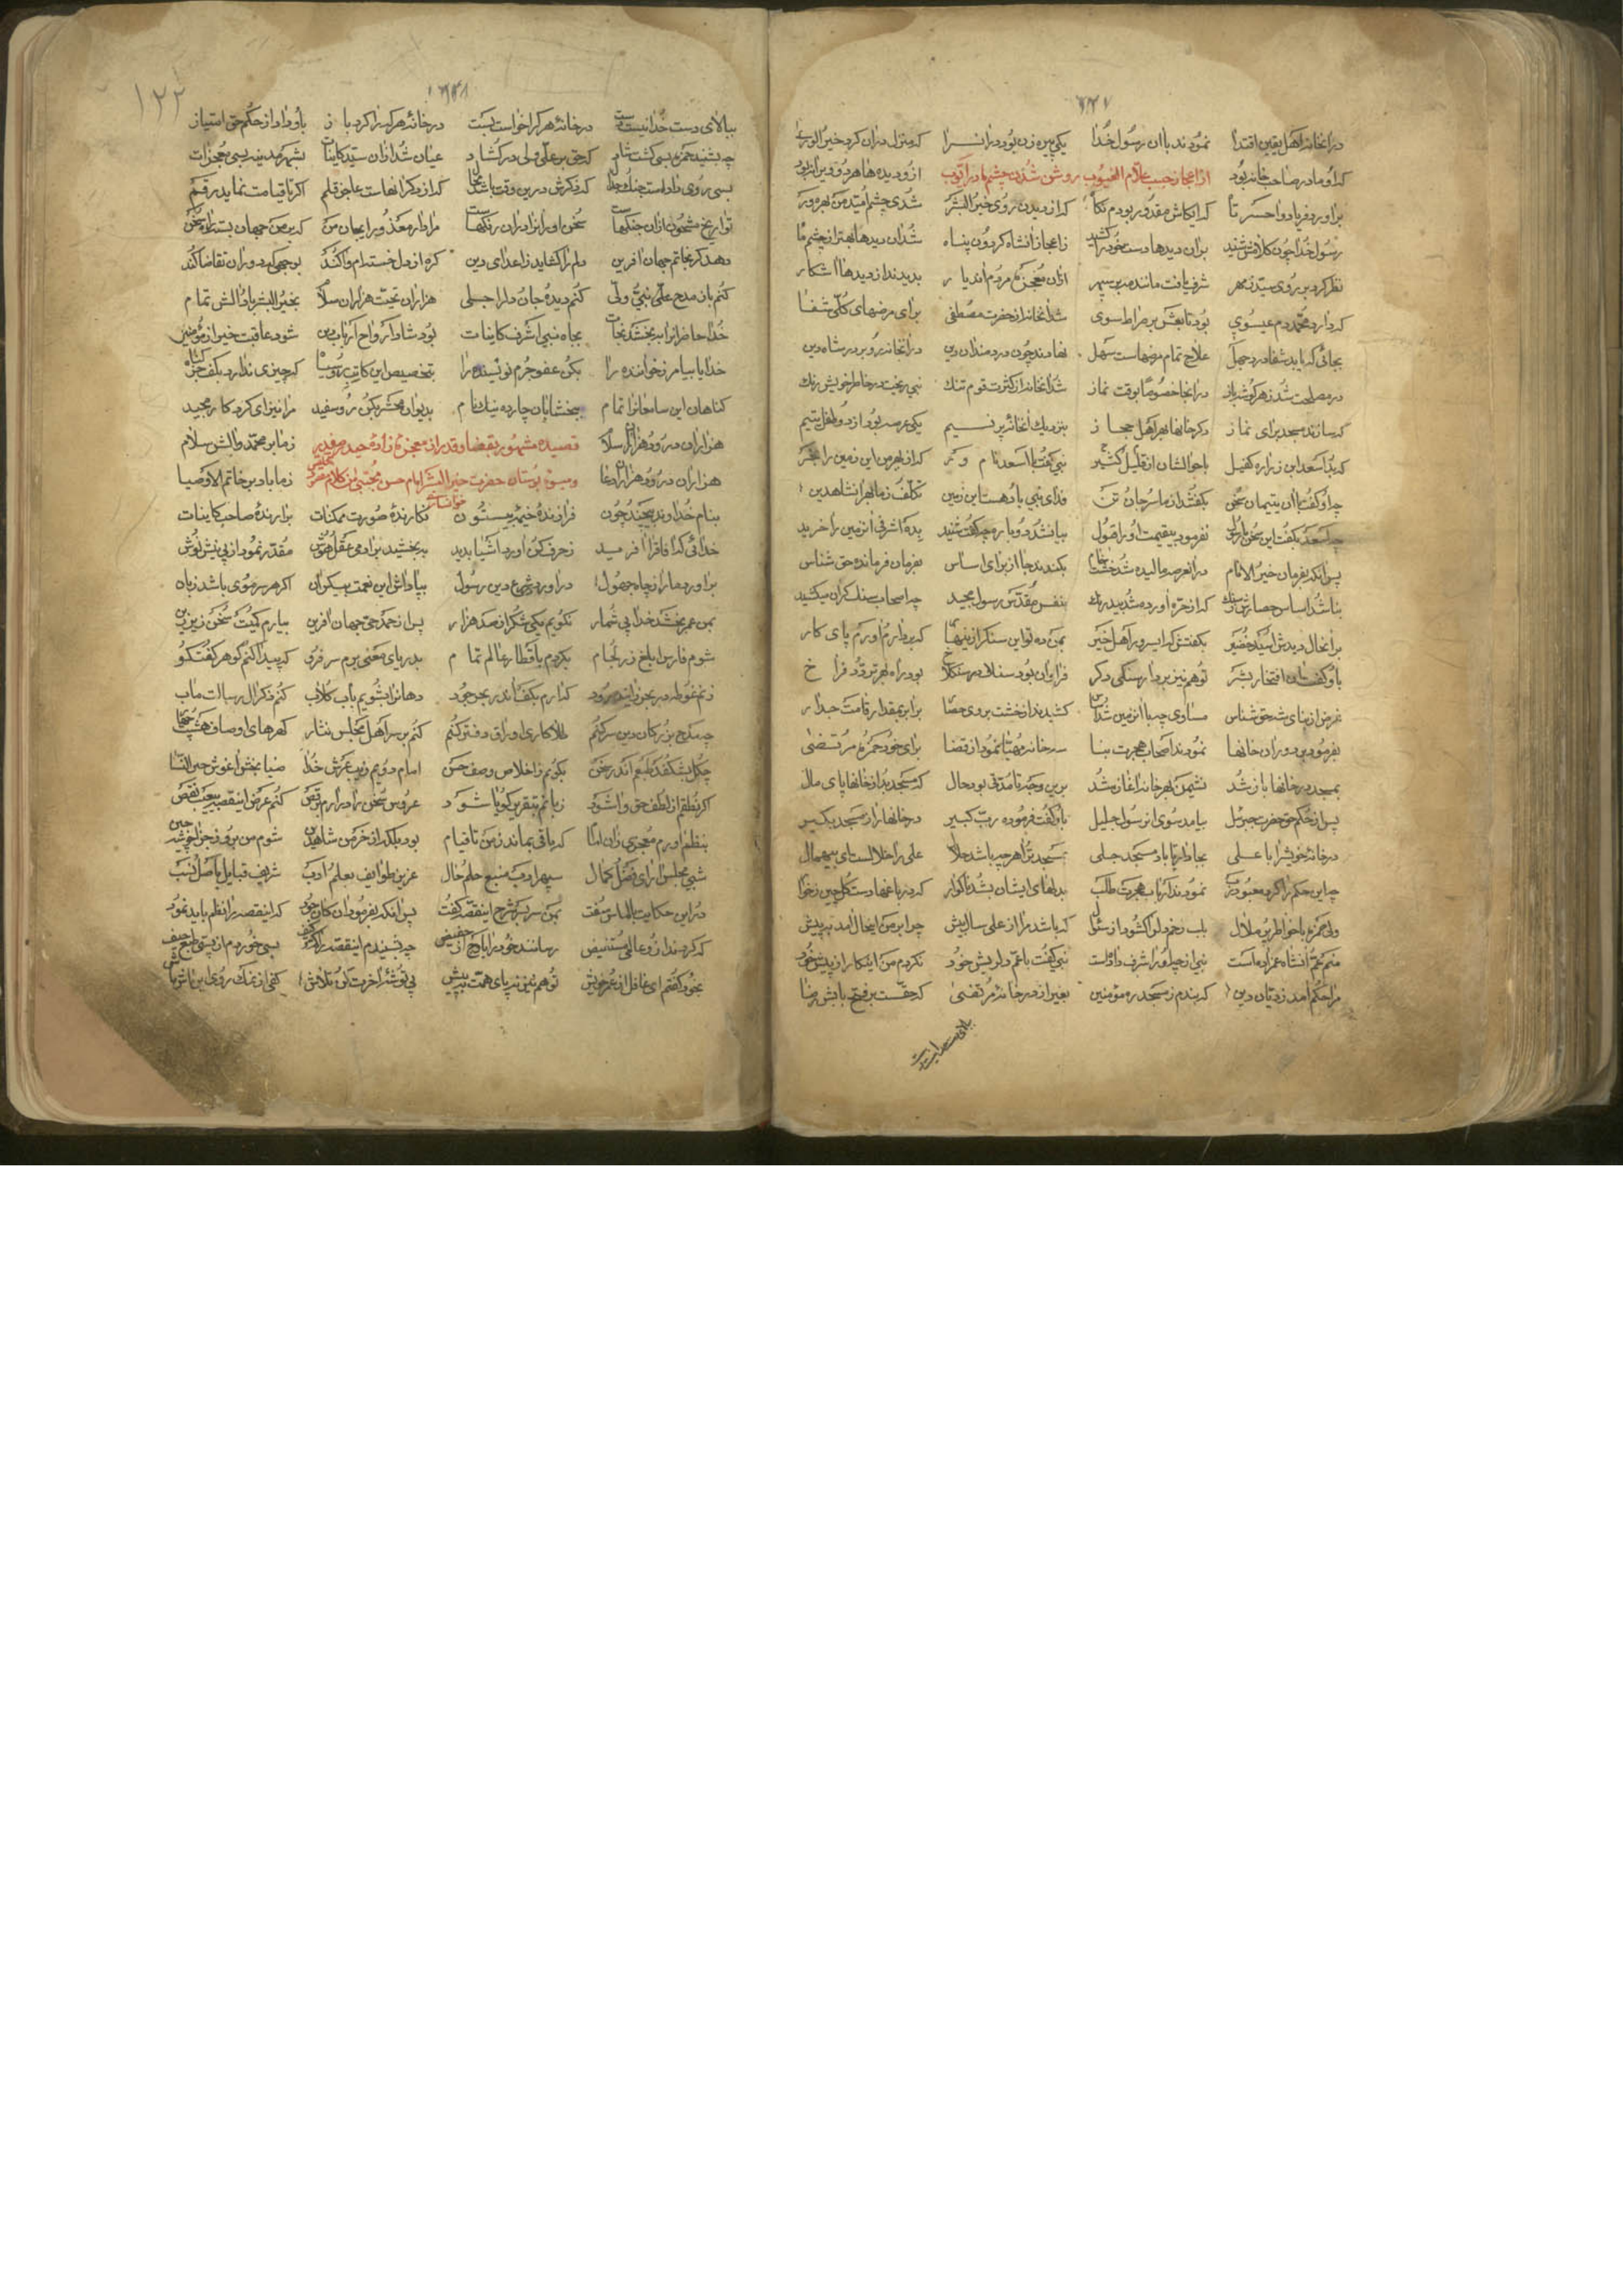 در انخانه اهل یقین اقتدا نمودند باان رسول خدا یکی پیر زن بود در انسرا که منزل دران کرد خیر الوری
که او مادر صاحب خانه بود از اعجاز حبیب علام الغیوب روشن شدن چشم مادر ایوب ازو دیده ها هر دو
براورد فریاد واحسرتا که ایکاش مقدور بودم که از دیدن روی خیر البشر شدی چشم امید من بهره ور
رسول خدا چون کلامش شنید بران دیدها دست خود را کشید ز اعجاز انشاه کردون پناه شد ان دیدها بهتر از چشم ما
نظر کرد بر روی سید ز مهر شرف یافت مانند بر سپهر ازان معجزه مردم اندیار بدیدند از دیدها اشکار
که دارد محمد دم عیسوی بود تابعش بر صراط سوی شد انخانه از حضرت مصطفی برای مرضهای کلی شفا
بجائی که یابد شفا درد جهل علاج تمام مرضهاست سهل نهادند چون دردمندان دین در انخانه رو بر در شاه دین
در مصلحت شد ز هر کوشه باز در انجا خصوصا بوقت نماز شد انخانه از کثرت قوم تنک نبی ریخت در خاطر خویش رنک
که سازند مسجد برای نماز دکر خانها بهر اهل حجاز بنزدیک انخانه پر نسیم یکی عرصه بود از دو طفل یتیم
که بد اسعد ابن زراره کفیل باحوالشان از قلیل و کثیر نبی کفت با اسعد نام ور که از بهر من این زمین را بخر
چو او کفت باان یتیمان سخن بکفتند از ما سر و جان و تن فدای نبی باد هست این زمین تکلف ز ما بهر انشاه دین
چو اسعد بکفت این سخن با رسول نفرمود بیقیمت او را قبول بیانشد دوباره چو کفت و شنید بده اشرفی انزمین را خرید
پس انکه بفرمان خیر الانام در انعرصه مالیده شد خشت خام بکندند جا از برای اساس بفرمان فرمانده حق شناس
بنا شد اساس حصارش بسنک که از حره اورده شد بیدرنک بنفس مقدس رسول مجید چو اصحاب سنک کران میکشید
بر انحال دیدش اسید حضیر بکفتش که ای سرور اهل خیر بمن ده تو این سنک از بنها که بردارم اورم پای کار
باو کفت ان افتخار بشر تو هم نیز بردار سنکی دکر فراوان بود سنک در سنکلاخ بود راه بهر تردد فراخ
غرض از بنای شه حق شناس مساوی چو با انزمین شد کشیدند از خشت بر وی حصا برابر بمقدار قامت جدار
بفرمود بر دور ان خانها نمودند اصحاب هجرت بنا سه خانه مهیا نمود از قضا برای خود و حمزه و مرتضی
بمسجد در خانها باز شد نشیمن بهر خانه اغاز شد برین وجه تا مدتی بود حال که مسجد بد از خانها پای مال
پس از حکم حق حضرت جبرئیل بیامد سوی ان رسول جلیل باو کفت فرموده رب کبیر در خانها را ز مسجد بکیر
در خانه خویش را با علی بجا دار تا باد مسجد جلی بمسجد ترا هر چه باشد حلال علی را حلالست ای بیهمال
چو این حکم را کرد معبود رب نمودند ارباب هجرت طلب بدلهای ایشان بشد ناکوار که در باغها دست کلچین زخوا
ولی حمزه با خواطر پر ملال بلب زخم دل را کشود از سئوال که باشد مرا از علی سال بیش چرا بر من اینحال امد به پیش
منم عم انشاه عمزاده است نبی از چه او را شرف داده است نبی کفت با عم دلریش خود نکردم من اینکار از پیش خود
مرا حکم امد ز دیان دین که بندم ز مسجد ره مؤمنین بغیر از در خانه مرتضی که حقست بر فتح بابش رضا
ببالای دست خدا نیست
۱۲۲
ببالای دست خدا نیست دست در خانه هر کرا خواست بست در خانه هر که را کرد باز باو داد از حکم حق امتیاز
چو بشنید حمزه بسی کشت شاد که حق بر علی ولی در کشاد عیان شد ازان سید کاینات بشهر مدینه بسی معجزات
بسی روی داد است جنک و جدل که ذکرش درین وقت باشد که از ذکر انهاست عاجز قلم اکر تا قیامت نماید رقم
تواریخ مشحون ازان جنکهاست سخن اوران را دران رنکهاست مرا دار معذور ای جان من که بر من جهان بسته راه سخن
دهد کر نجاتم جهان افرین دلم را کشاید ز اعدای دین کره از دل خسته ام وا کند
کنم باز مدح علی نبی ولی کنم دیده جان و دل را جلی هزاران تحیت هزاران سلام بخیر البشر باد و الش تمام
خدا حاضرانرا ببخشد نجات بجاه نبی اشرف کاینات بود شاد ارواح ارباب دین شود عاقبت خیر از مؤمنین
خدایا بیامرز خواننده را بکن عفو جرم نویسنده را بتخصیص این کاتب رو سیاه که چیزی ندارد بکف جز کناه
کناهان این سامعانرا تمام ببخشا بان چارده نیک نام بدیوان محشر بکن رو سفید مرا نیز ای کردکار مجید
هزاران درود و هزاران سلام قصیده مشهور بقضا و قدر از معجزه زاده حیدر صفدر ز ما بر محمد و الش سلام
هزاران درود و هزاران دعا و میوه بوستان حضرت خیر البشر امام حسن مجتبی من کلام ز ما باد بر خاتم الاوصیا
بنام خداوند بیچند و چون فرازنده خیمه بیستون نکارنده صورت ممکنات برارنده صاحب کاینات
خدائی که افاق را افرید ز حرف کن اورد اشیا پدید ببخشید بر ادمی عقل و هوش مقدر نمود از پی نیش نوش
براورد ما را ز چاه جهول دراورد شرع دین رسول بپاداش این نعمت بیکران اکر هر سر موی باشد زبان
بمن عمر بخشد خدا بی شمار نکویم یکی شکر از صد هزار پس از حمد حق جهان افرین بیارم کمیت سخن زیر زین
شوم فارس ابلق ز لجام بکردم باقطار عالم تمام بدریای معنی برم سر فرو که پیدا کنم کوهر کفتکو
زنم غوطه در بحر کنارم بکف اندر بحر جود دهانرا بشویم باب کلاب کنم ذکر ال رسالت ماب
چو مدح بزرکان دین سر کنم طلا کاری اوراق دفتر کنم کنم بر سر اهل مجلس نثار کهرهای اوصاف هشت
چو کل بشکفد طبعم اندر سخن بکویم ز اخلاص وصف حسن امام دویم زیب عرش خدا ضیا بخش اغوش خیر النسا
اکر نطقم از لطف حق وا شود زبانم بتقریر کویا شود عروس سخن را درارم برقص کنم عرض اینقصه بیعیب و نقص
بنظم اورم معجزی زان امام که باقی بماند ز من تا قیام
شبی مجلس ارای فضل و کمال سپهر ادب منبع حلم و حال عزیز طوائف بعلم و ادب شریف قبایل باصل و نسب
در این حکایت بالماس سفت بمن سر بسر شرح اینقصه کفت پس انکه بفرمود ان کان جود که اینقصه را نظم باید نمود
که کردند ازو عالمی مستفیض رسانند خود را باوج از حضیض چو بشنیدم اینقصه را
بخود کفتم ای غافل از عمر خویش تو هم نیز نه پای همت به پیش پی توشه اخرت کن تلاش